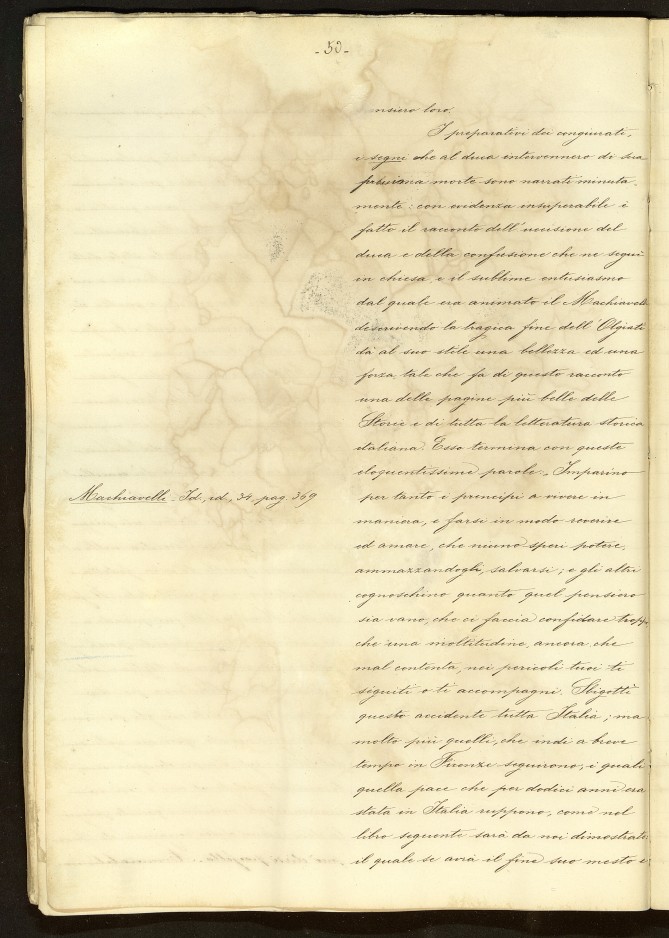 - 50 -
nsiero loro.
I preparativi dei congiurati,
i segni che al duca intervennero di sua
morte sono narrati minuta-
mente: con evidenza insuperabile è
fatto il racconto dell'uccisione del
duca e della confusione che ne seguì
in chiesa, e il sublime entusiasmo
dal quale era animato il Machiavelli
descrivendo la tragica fine dell'Olgiati
dà al suo stile una bellezza ed una
forza tale che fa di questo racconto
una delle pagine più belle delle
Storie e di tutta la letteratura storica
italiana. Esso termina con queste
eloquentissime parole: Imparino
Machiavelli - Id., id., 34, pag. 369
per tanto i principi a vivere in
maniera, e farsi in modo reverire
ed amare, che niuno speri potere,
ammazzandogli, salvarsi; e gli altri
cognoschino quanto quel pensiero
sia vano, che ci faccia confidare troppo
che una moltitudine, ancora che
mal contenta, nei pericoli tuoi ti
seguiti o ti accompagni. Sbigottì
questo accidente tutta Italia; ma
molto più quelli, che indi a breve
tempo in Firenze seguirono; i quali
quella pace che per dodici anni era
stata in Italia ruppono, come nel
libro seguente sarà da noi dimostrato:
il quale se avrà il fine suo mesto e